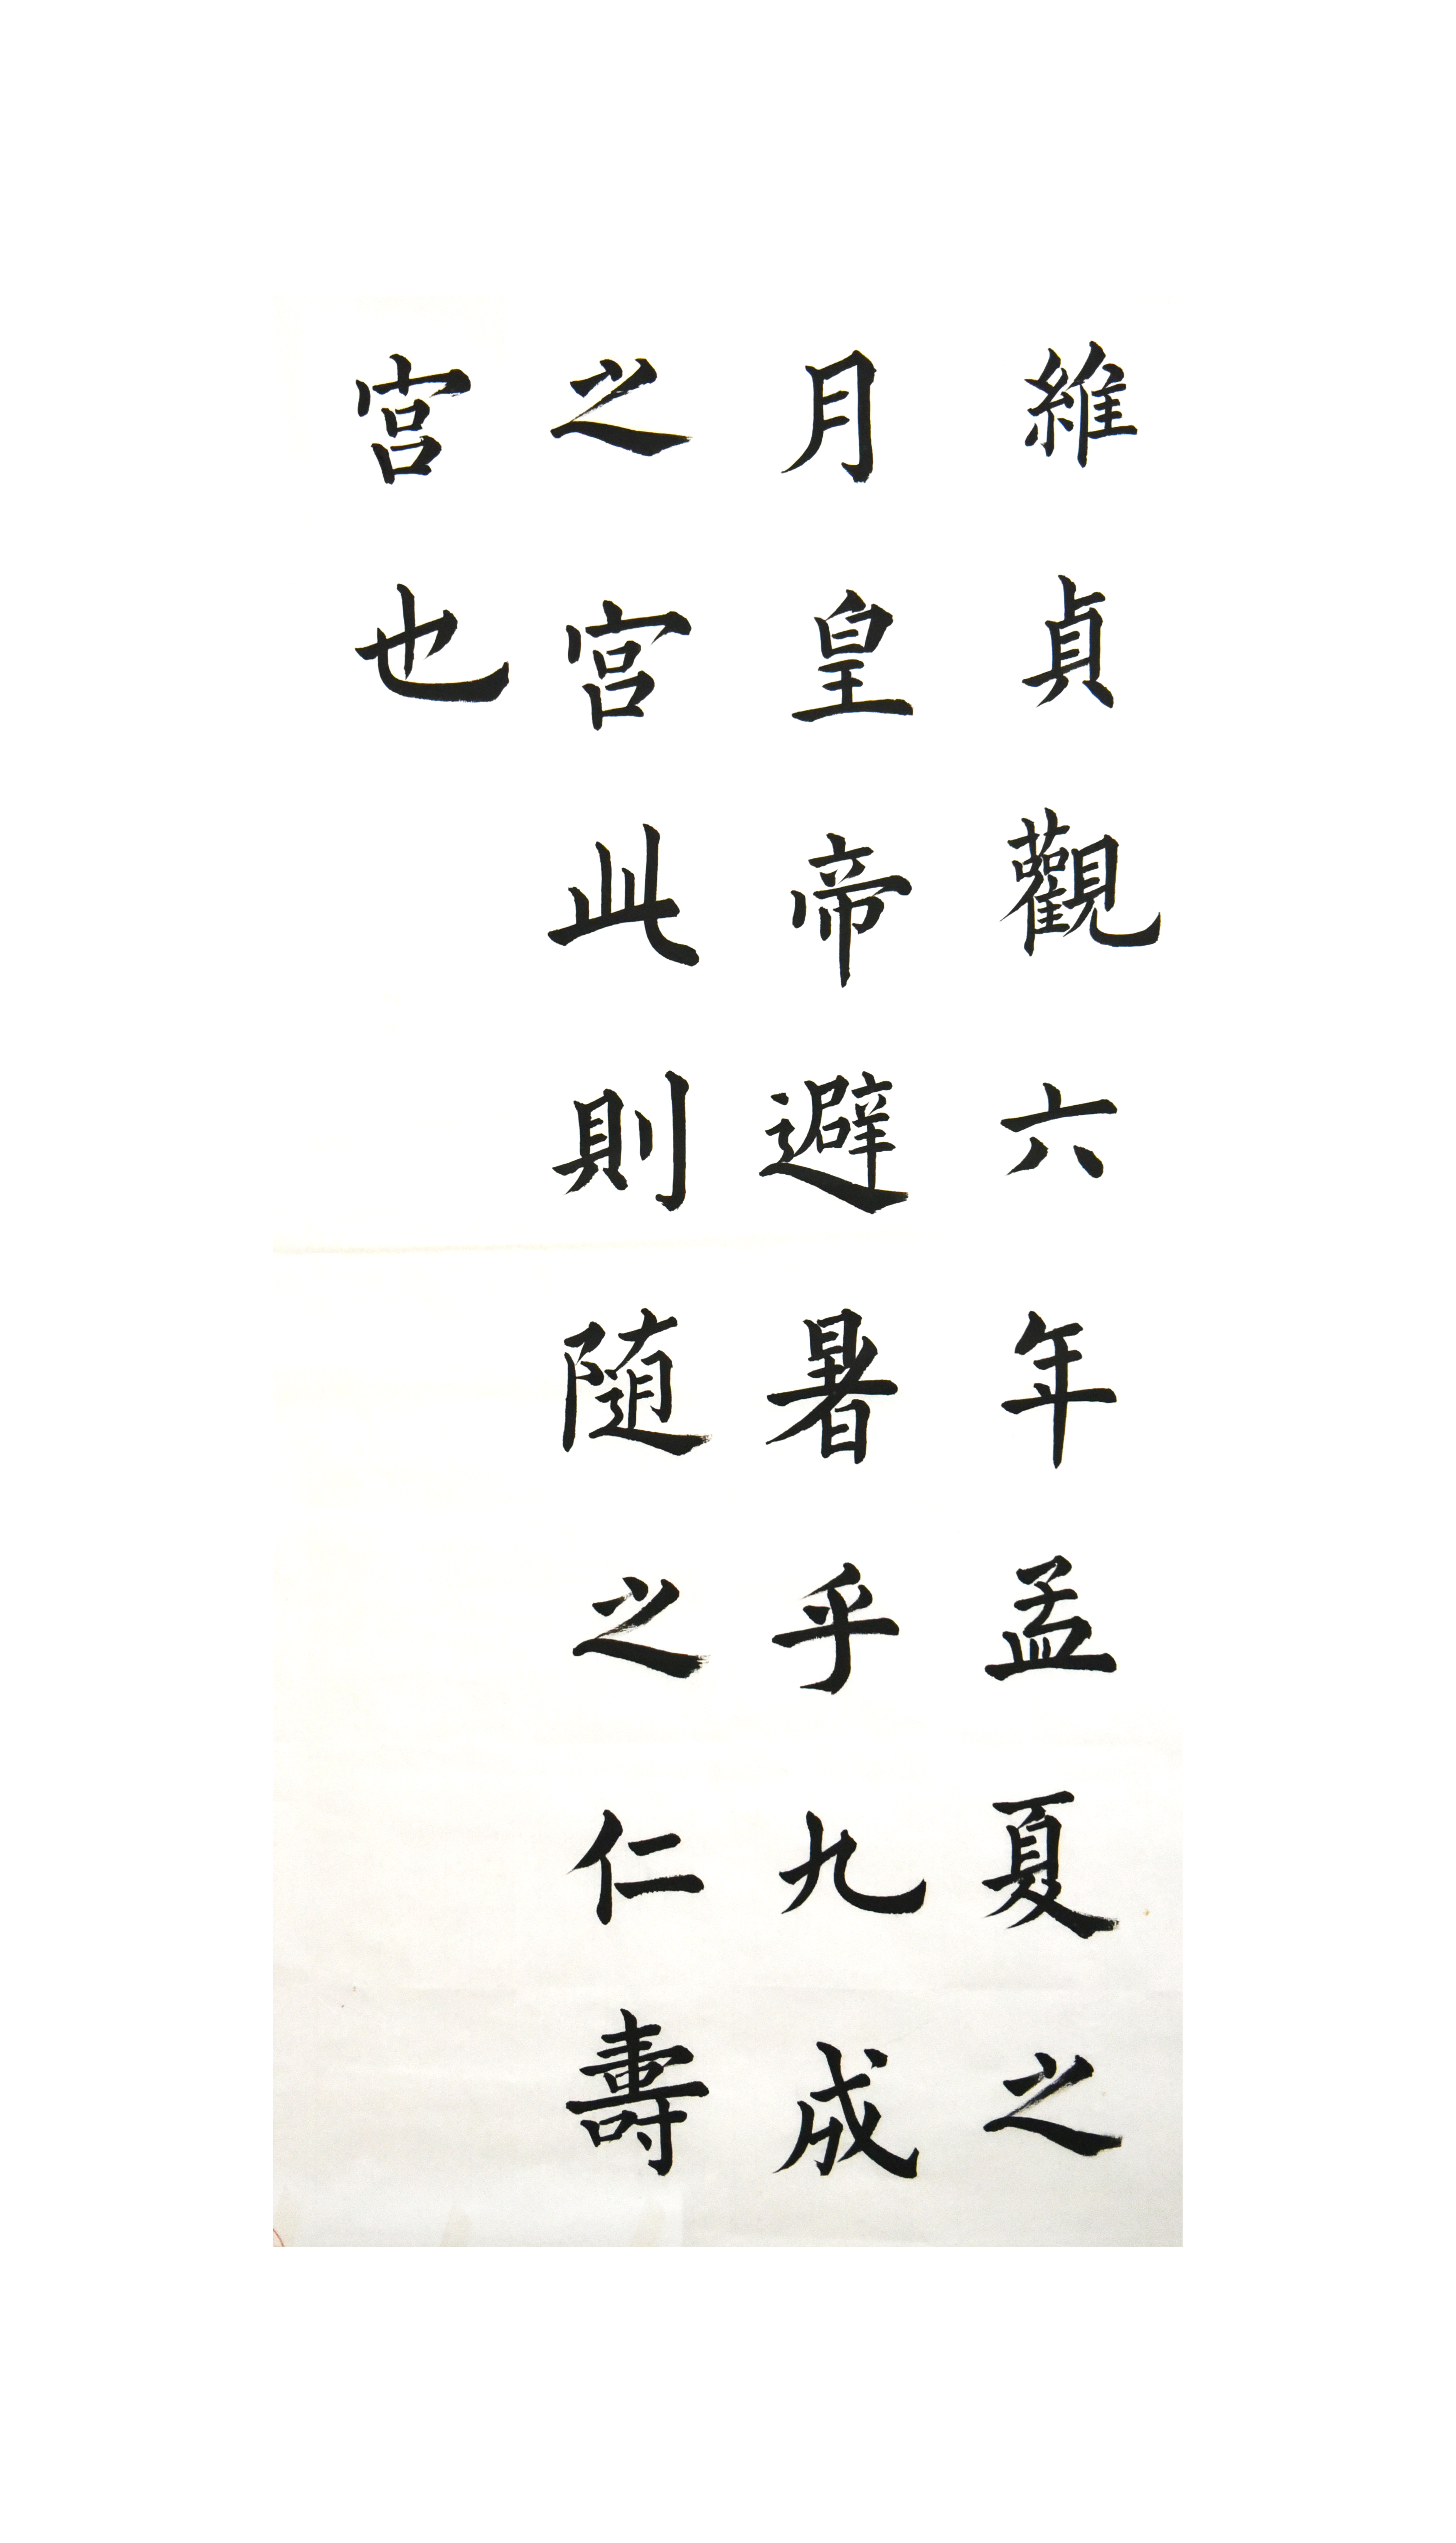 維貞觀六年孟夏之
月皇帝避暑乎九成
之宮此則随之仁壽
宮也